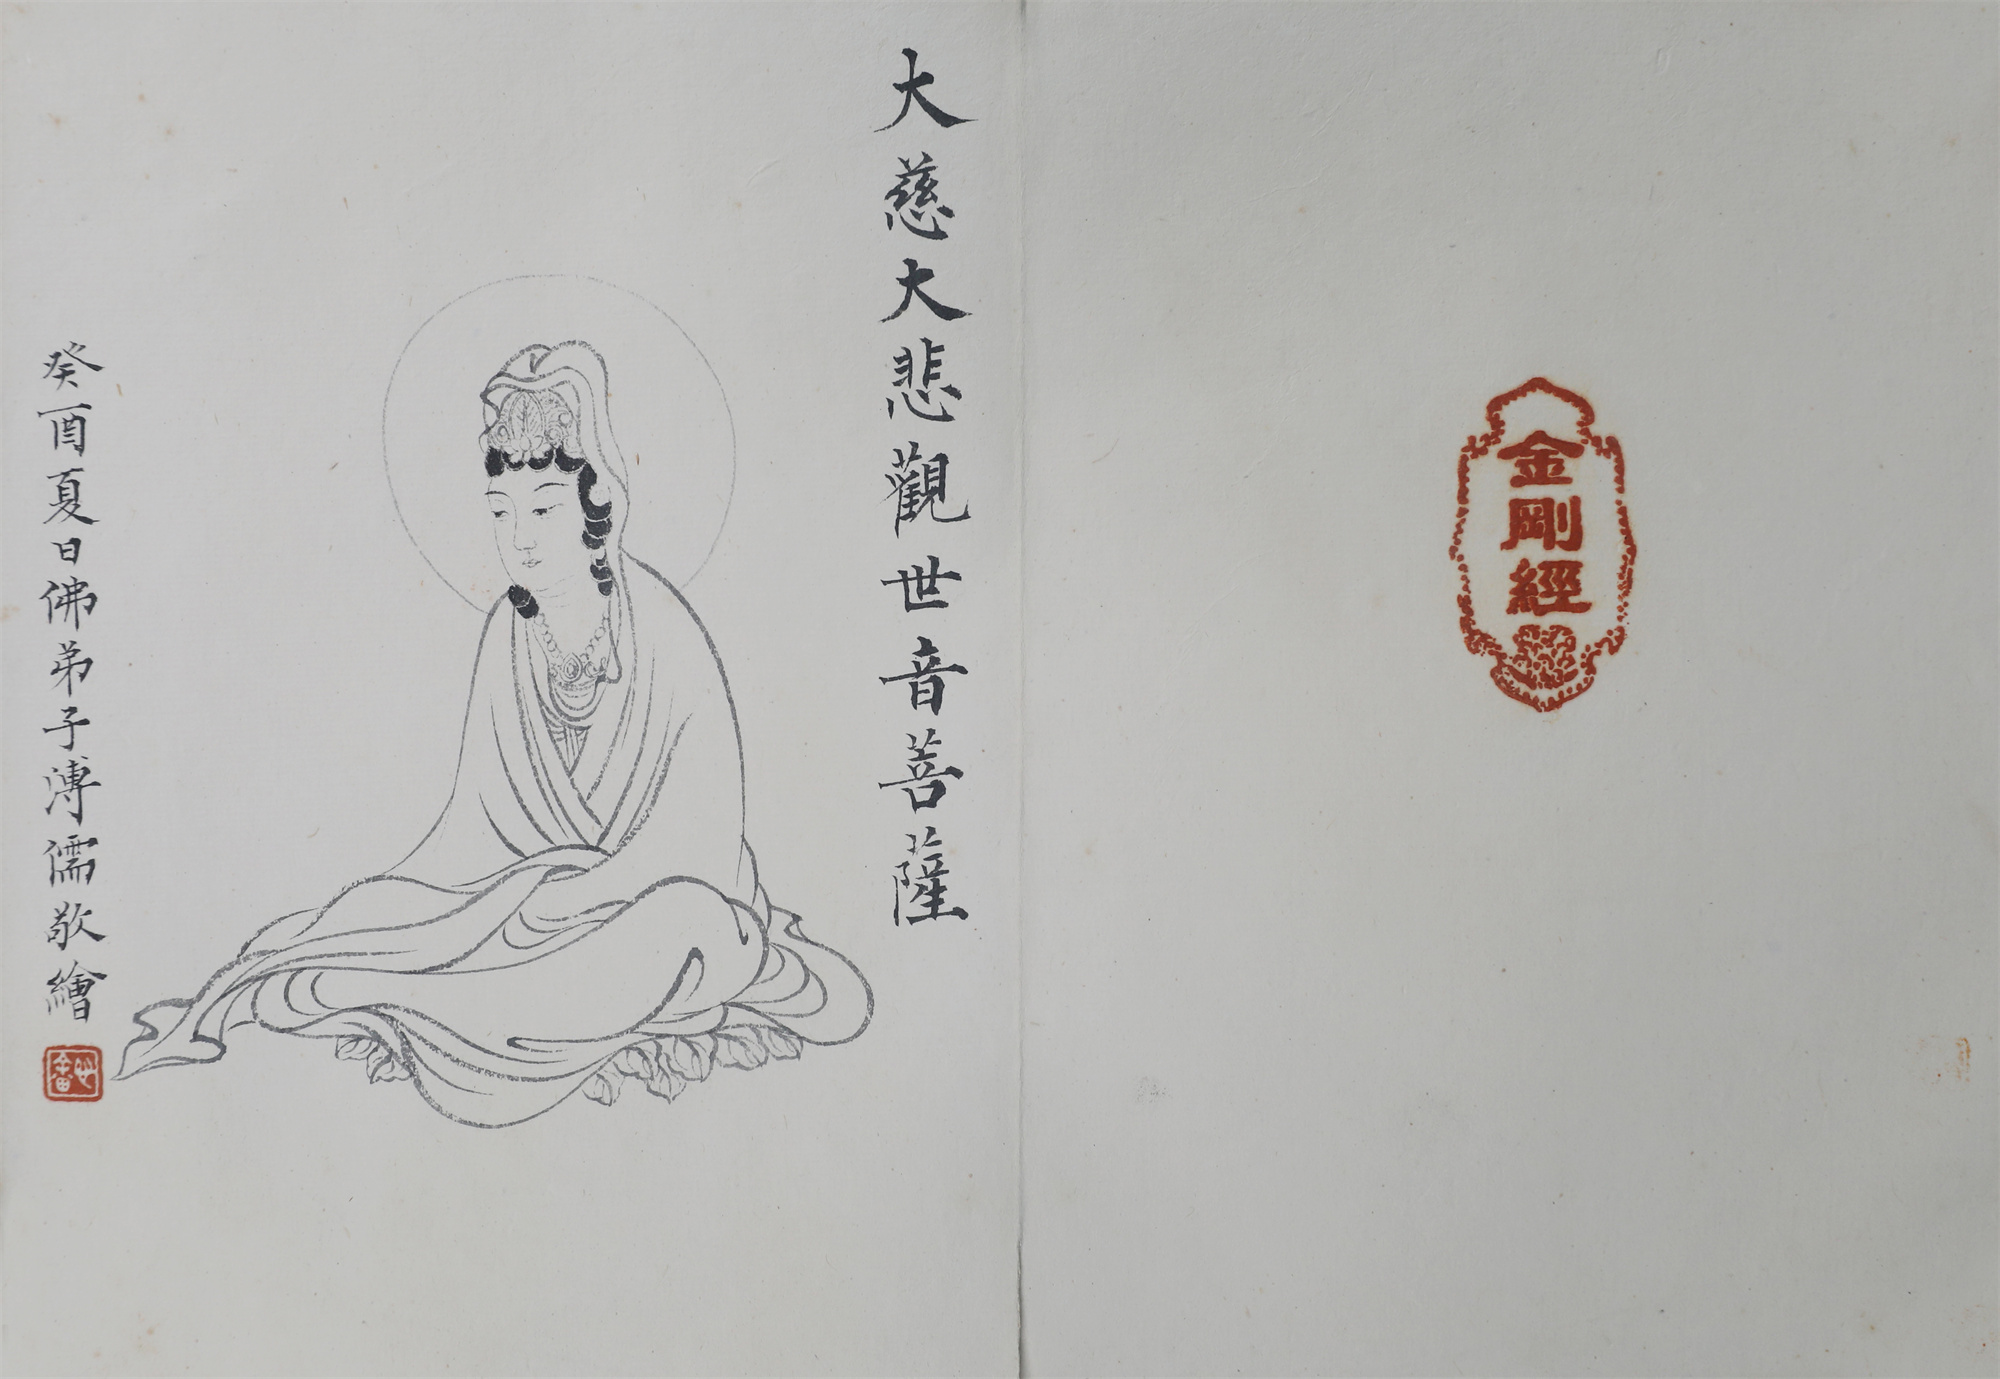 金剛經
大慈大悲觀世音菩薩
癸酉夏日佛弟子溥儒敬繪